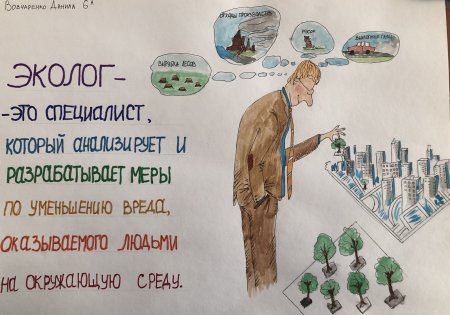 Вовчаренко Данила 6А
ОТХОДЫ ПРОИЗВОДСТВА
МУСОР
ВЫХЛОПНЫЕ ГАЗЫ
ВЫРУБКА ЛЕСОВ
ЭКОЛОГ-
-ЭТО СПЕЦИАЛИСТ,
КОТОРЫЙ АНАЛИЗИРУЕТ И
РАЗРАБАТЫВАЕТ МЕРЫ
ПО УМЕНЬШЕНИЮ ВРЕДА,
ОКАЗЫВАЕМОГО ЛЮДЬМИ
НА ОКРУЖАЮЩУЮ СРЕДУ.